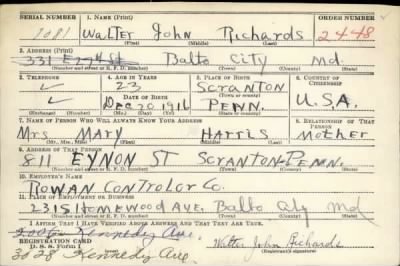 SERIAL NUMBER 1. NAME (Print) ORDER NUMBER
1081 Walter John Richards 2448
(First) (Middle) (Last)
2. ADDRESS (Print)
331 E 27th St Balto City Md.
(Number and street or R. F. D. number) (Town) (County) (State)
3. TELEPHONE 4. AGE IN YEARS 5. PLACE OF BIRTH 6. COUNTRY OF CITIZENSHIP
✓ 23 SCRANTON
DATE OF BIRTH (Town or county)
✓ Dec 20 1916 PENN. U.S.A.
(Mo.) (Day) (Yr.) (State or country)
7. NAME OF PERSON WHO WILL ALWAYS KNOW YOUR ADDRESS 8. RELATIONSHIP OF THAT PERSON
Mrs MARY HARRIS Mother
(Mr., Mrs., Miss) (First) (Middle) (Last)
9. ADDRESS OF THAT PERSON
811 EYNON ST SCRANTON PENN.
(Number and street or R. F. D. number) (Town) (County) (State)
10. EMPLOYER'S NAME
ROWAN CONTROLOR CO.
11. PLACE OF EMPLOYMENT OR BUSINESS
2315 HOMEWOOD AVE. Balto City Md
(Number and street or R. F. D. number) (Town) (County) (State)
I AFFIRM THAT I HAVE VERIFIED ABOVE ANSWERS AND THAT THEY ARE TRUE.
Kennedy Ave.
REGISTRATION CARD
D. S. S. Form 1 Walter John Richards
2028 Kennedy Ave (Registrant's signature)